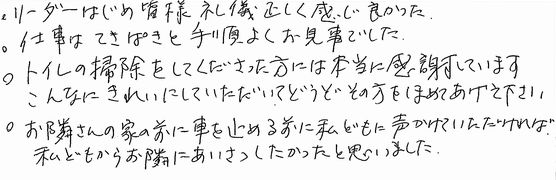 。リーダーはじめ皆様礼儀正しく感じ良かった.
。仕事はてきぱきと手順よくお見事でした.
○ トイレの掃除をしてくださった方には本当に感謝しています
こんなにきれいにしていただいてどうぞその方をほめてあげて下さい
○ お隣さんの家の前に車を止める前に私どもに声かけていただければ
私どもからお隣にあいさつしたかったと思いました.